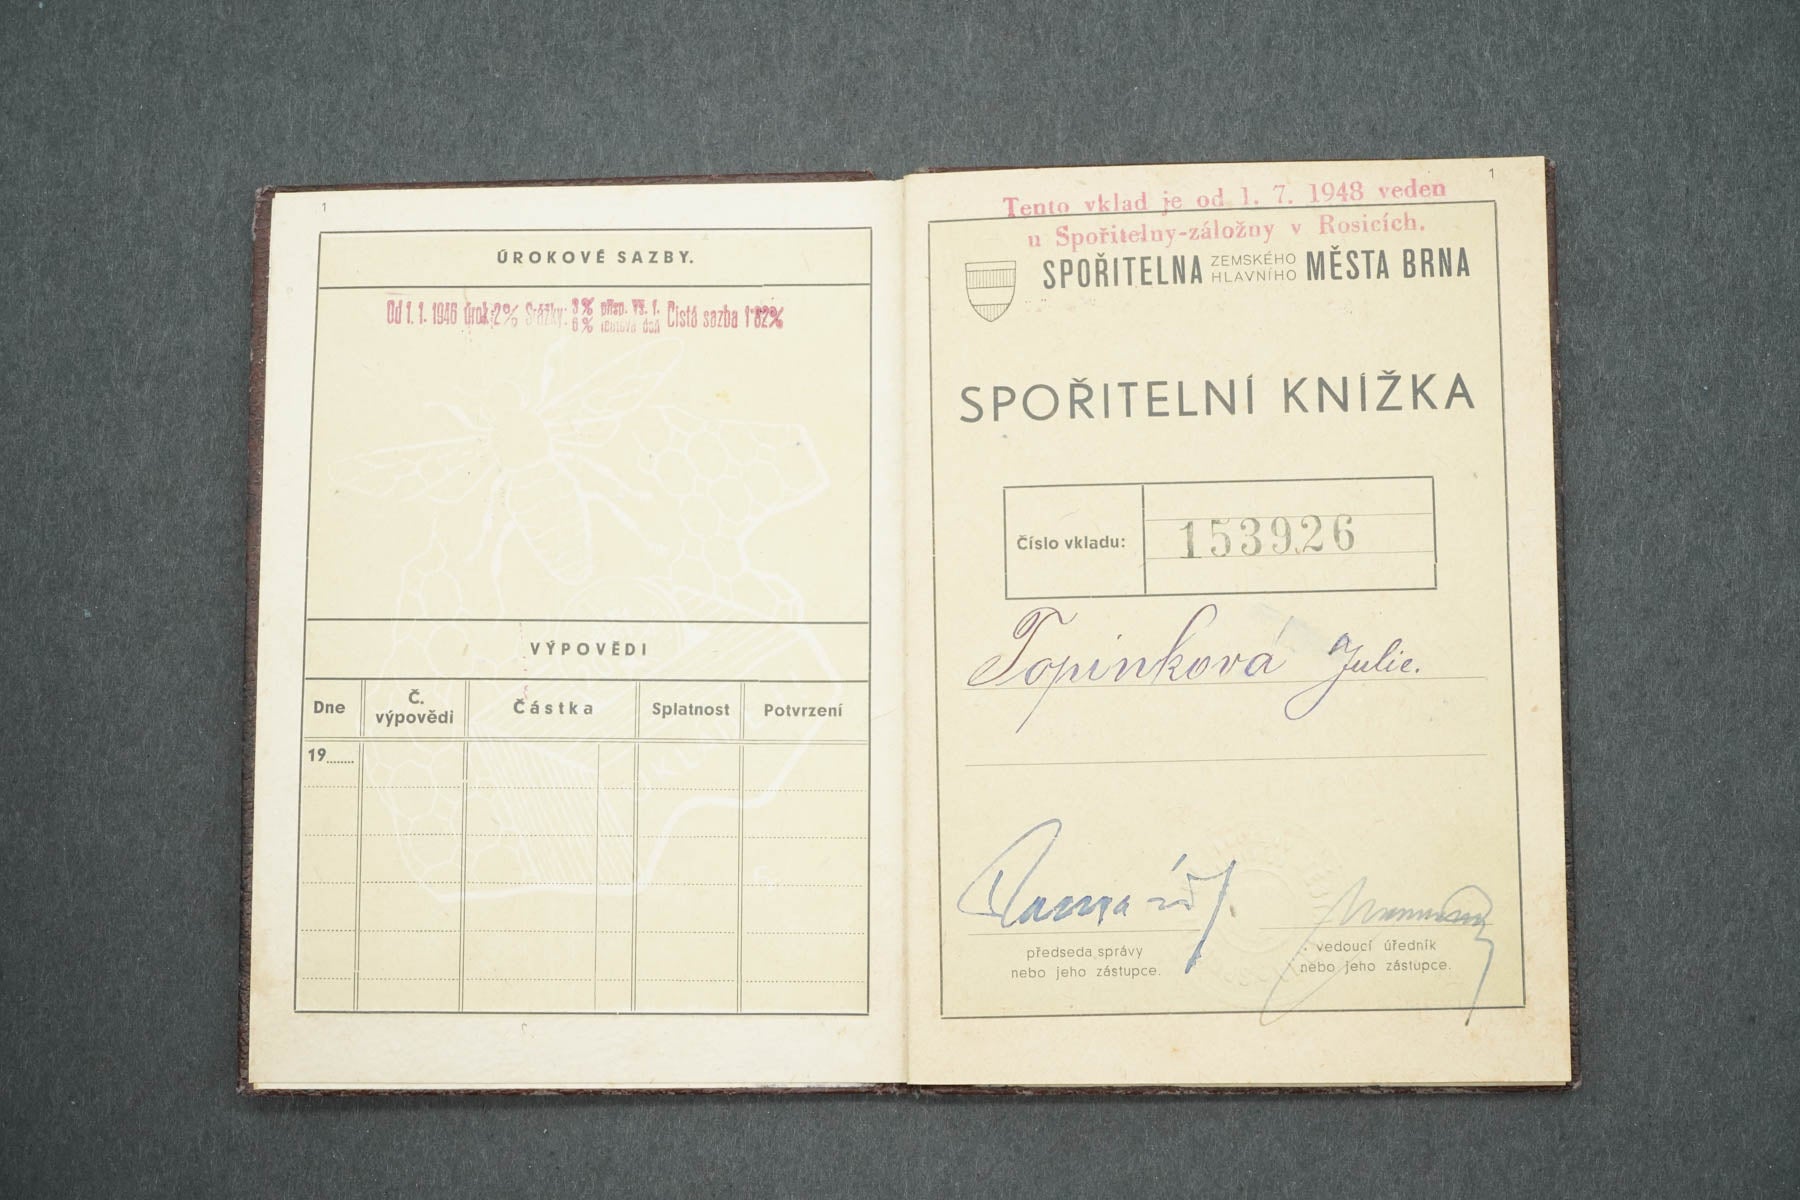 1
ÚROKOVÉ SAZBY.
Od 1. 1. 1946 úrok 2% Srážky: 3% přísp. vš. f. Čistá sazba 1·82%
6% rentová daň
VÝPOVĚDI
Dne Č. výpovědi Částka Splatnost Potvrzení
19........
1
Tento vklad je od 1. 7. 1948 veden
u Spořitelny-záložny v Rosicích.
SPOŘITELNA ZEMSKÉHO HLAVNÍHO MĚSTA BRNA
SPOŘITELNÍ KNÍŽKA
Číslo vkladu: 153926
Topinková Julie.
předseda správy
nebo jeho zástupce.
vedoucí úředník
nebo jeho zástupce.